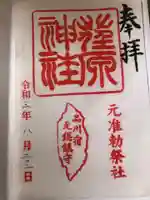 奉拝
元准勅祭社
荏原神社
品川宿
鎮守
令和二年八月日